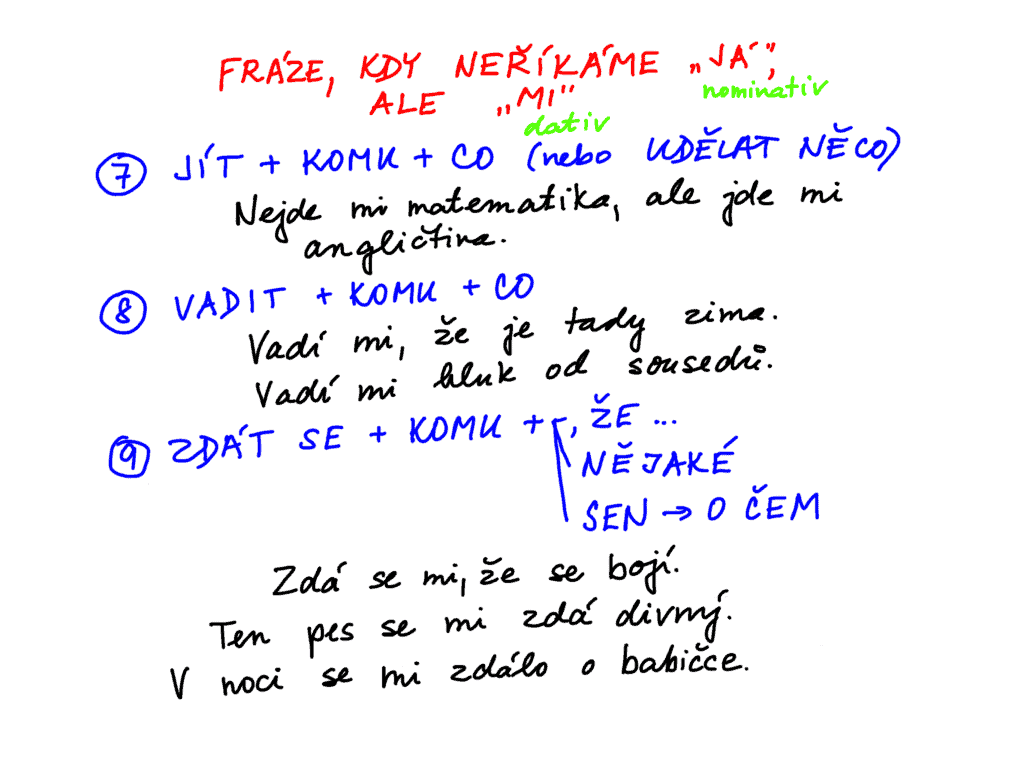 FRÁZE, KDY NEŘÍKÁME „JÁ",
nominativ
ALE „MI"
dativ
7 JÍT + KOMU + CO (nebo UDĚLAT NĚCO)
Nejde mi matematika, ale jde mi
angličtina.
8 VADIT + KOMU + CO
Vadí mi, že je tady zima.
Vadí mi hluk od sousedů.
9 ZDÁT SE + KOMU + , ŽE ...
NĚJAKÉ
SEN → O ČEM
Zdá se mi, že se bojí.
Ten pes se mi zdá divný.
V noci se mi zdálo o babičce.